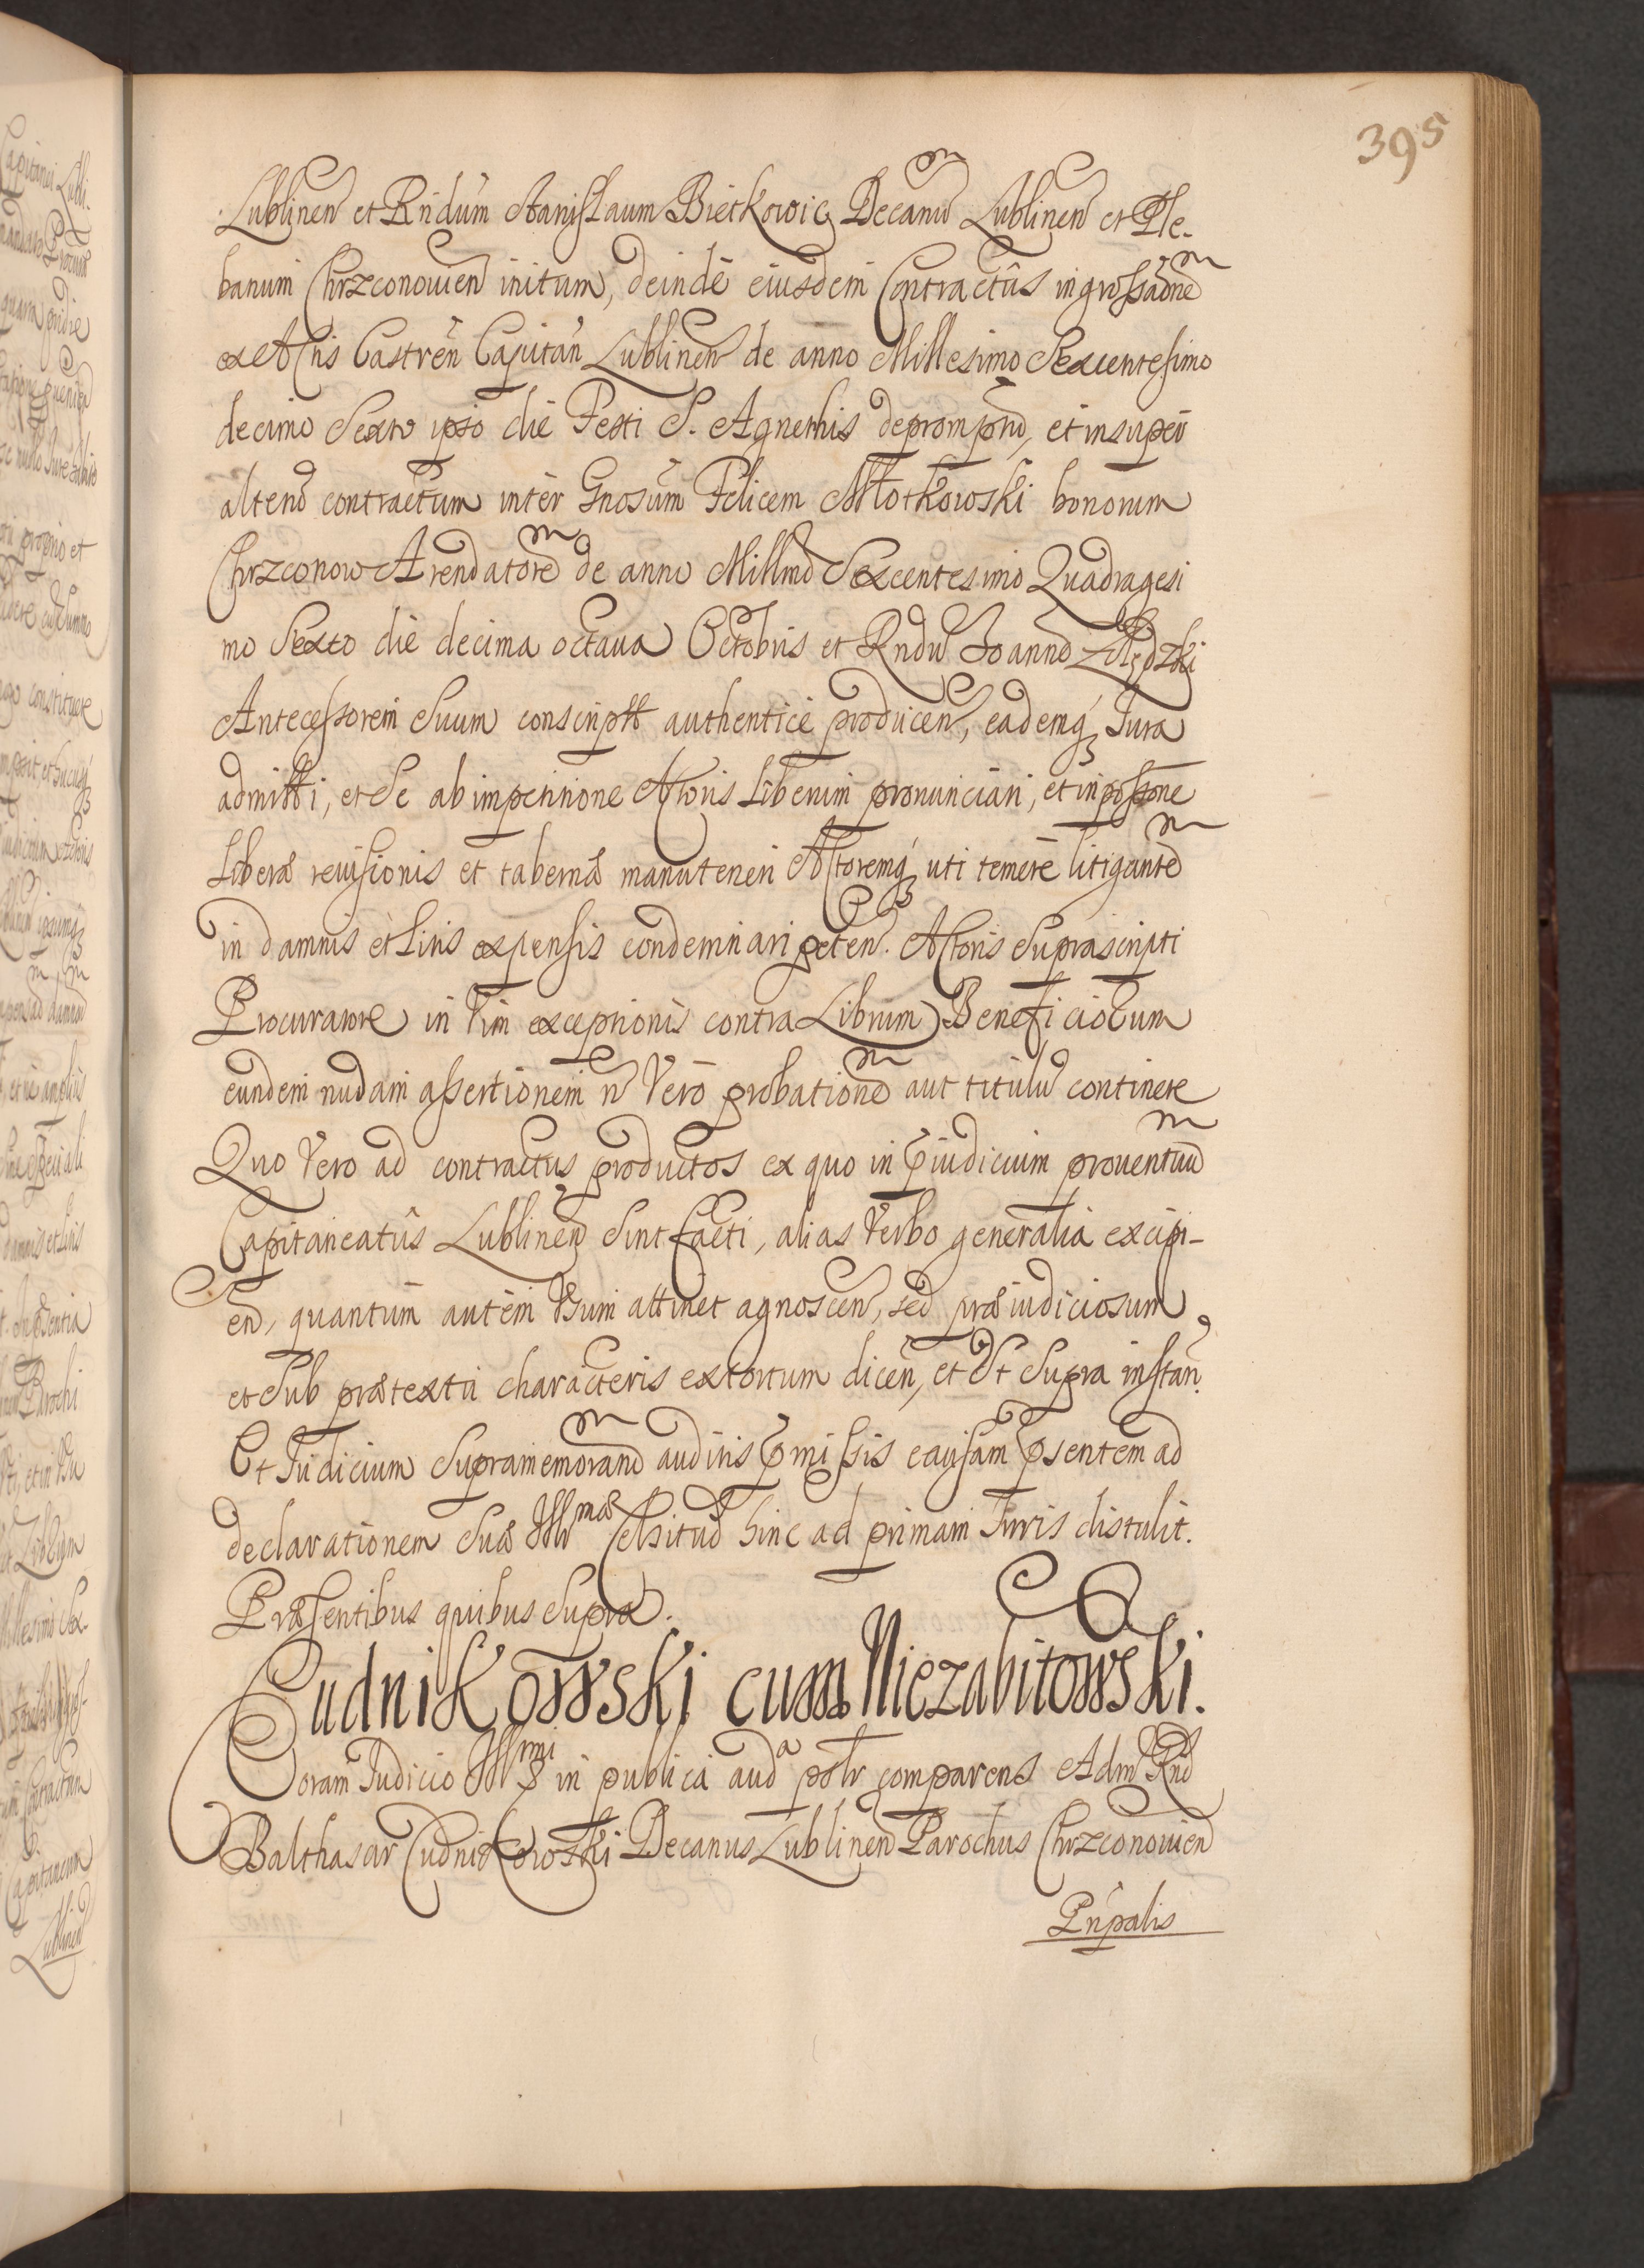 395
Lublinen et Rndum Stanislaum Bietkowic Decanu Lublinen et Ple-
banum Chrzconouien initum, deinde eiusdem Contractus ingrossaone
ex Actis Castren Capitan Lublinen de anno Millesimo Sexcentesimo
decimo Sexto ipso die Festi S. Agnethis depromptu, et insuper
alterū contractum inter Gnosum Felicem Młotkowski bonorum
Chrzconow Arendatore de anno Millmo Sexcentesimo Quadragesi
mo Sexto die decima octaua Octobris et Rndu Joanne
Antecessorem Suum conscriptū authentice producen, eademq Jura
admitti, et Se ab impetitione Actoris Liberum pronunciari, et in possone
Liberæ reuisionis et tabernæ manuteneri Actoremq uti temere litigante
in damnis et Litis expensis condemnari peten. Actoris Suprascripti
Procuratore in Vim exceptionis contra Librum Beneficiorum
eundem nudam assertionem n Vero probatione aut titulu continere
Quo Vero ad contractus productos ex quo in piudicium prouentuu
Capitaneatus Lublinen Sint facti, alias Verbo generalia excipi-
en, quantum autem Usum attinet agnoscen, sed præiudiciosum
et Sub prætextu characteris extortum dicen, et Ut Supra instan.
Et Judicium Supramemoratū auditis pmissis causam psentem ad
declarationem Suæ Illmæ Celsitud hinc ad primam Juris distulit.
Præsentibus quibus Supra.
Cudnikowski cum Niezabitowski.
Coram Judicio Illmi in publica auda pslr comparens Adm Rnd
Balthasar Cudnikowski Decanus Lublinen Parochus Chrzconouien
Pripalis